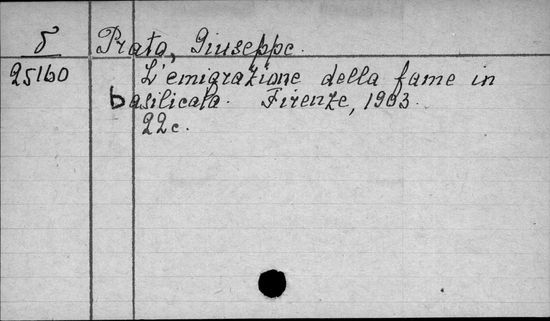 δ Prato, Giuseppe.
25160 L'emigrazione della fame in
basilicata. Firenze, 1903.
22c.